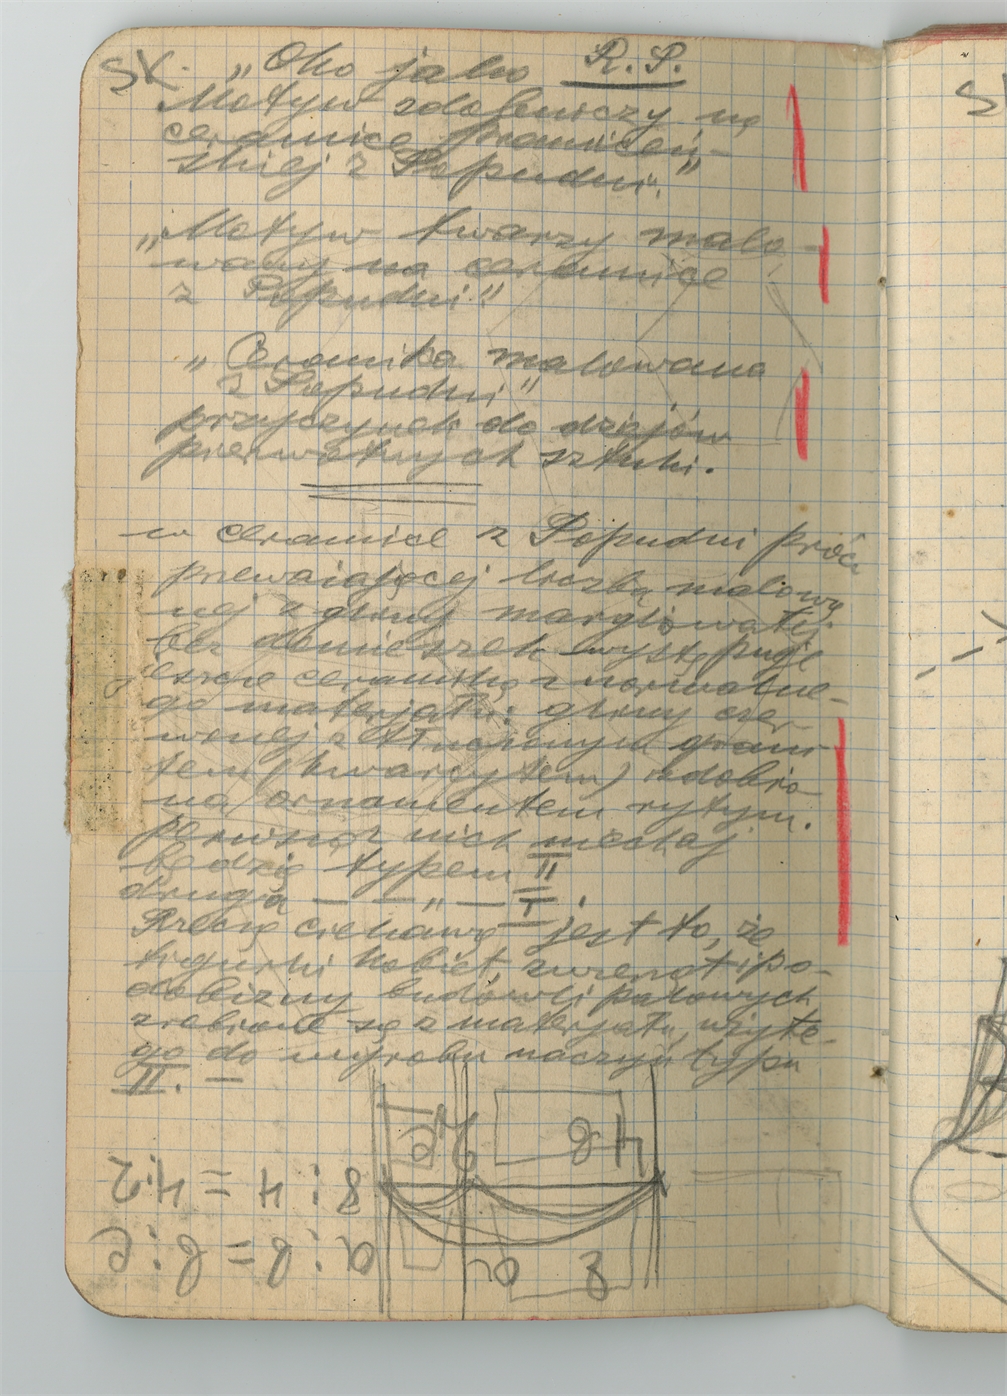 SK. „Oko jako R. P.
Motyw zdobniczy na
ceramice
skiej z Popudni."
„Motyw twarzy malo-
wany na ceramice
z Popudni."
„Ceramika malowana
z Popudni"
przyczynek do dziejów
pierwotnych sztuki.
w ceramice z Popudni prócz
przeważającej liczbą malowa
nej z gliny marglowatej
bez domieszek występuje
jeszcze ceramika z normalne-
go materjału: gliny czer
wonej z tłuczonym grani
tem (kwarcytem) zdobio
na ornamentem rytym.
pierwsza z nich niechaj
będzie typem II
druga — — „ — I.
Rzeczą ciekawą jest to, że
figurki kobiet, zwierząt i po-
dobizny budowli palowych
zrobione są z materjału użyte-
go do wyrobu naczyń typu
II. —
a : b = b : c
8 : 4 = 4 : 2
a 8
b 4
c 2